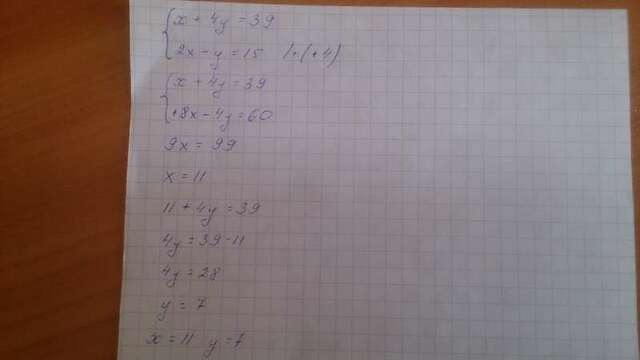 {x + 4y = 39
2x - y = 15 |·(+4)
{x + 4y = 39
+8x - 4y = 60
9x = 99
x = 11
11 + 4y = 39
4y = 39 - 11
4y = 28
y = 7
x = 11 y = 7